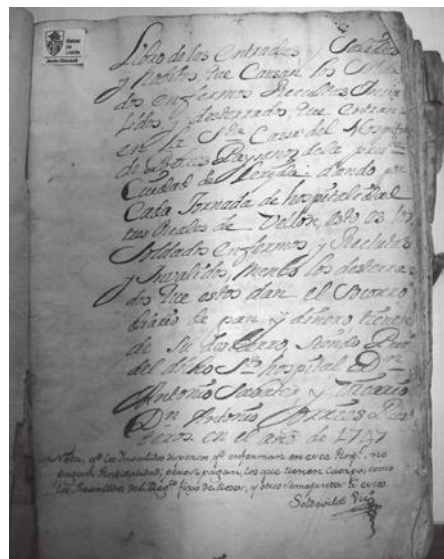 Bisbat
de
Lleida
Libro de las entradas y Salidas
y Muertos, que Causan los Solda
dos enfermos Reclutas Inva
lidos y desterrados, que entran
en la Sta Casa del Hospital
de Pobres Paysanos de la
Ciudad de Lerida: dando por
Cada Jornada de hospitalidad
tres Reales de Vellon, esto es los
Soldados enfermos, y Reclutas
y Invalidos, menos los desterra
dos que estos dan el Socorro
diario de pan y dinero tienen
de su destierro, siendo Prior
del dicho Sto hospital el Dn
Antonio Sabater y Vicario
Dn Antonio
en el año de 1747
Nota, qe los Invalidos dispersos qe enferman en este Hospl, no
pagan Hospitalidad, pero si pagan los que tienen Cuerpo, como
los Invalidos del Regto fixo de y otros semejantes a estos.